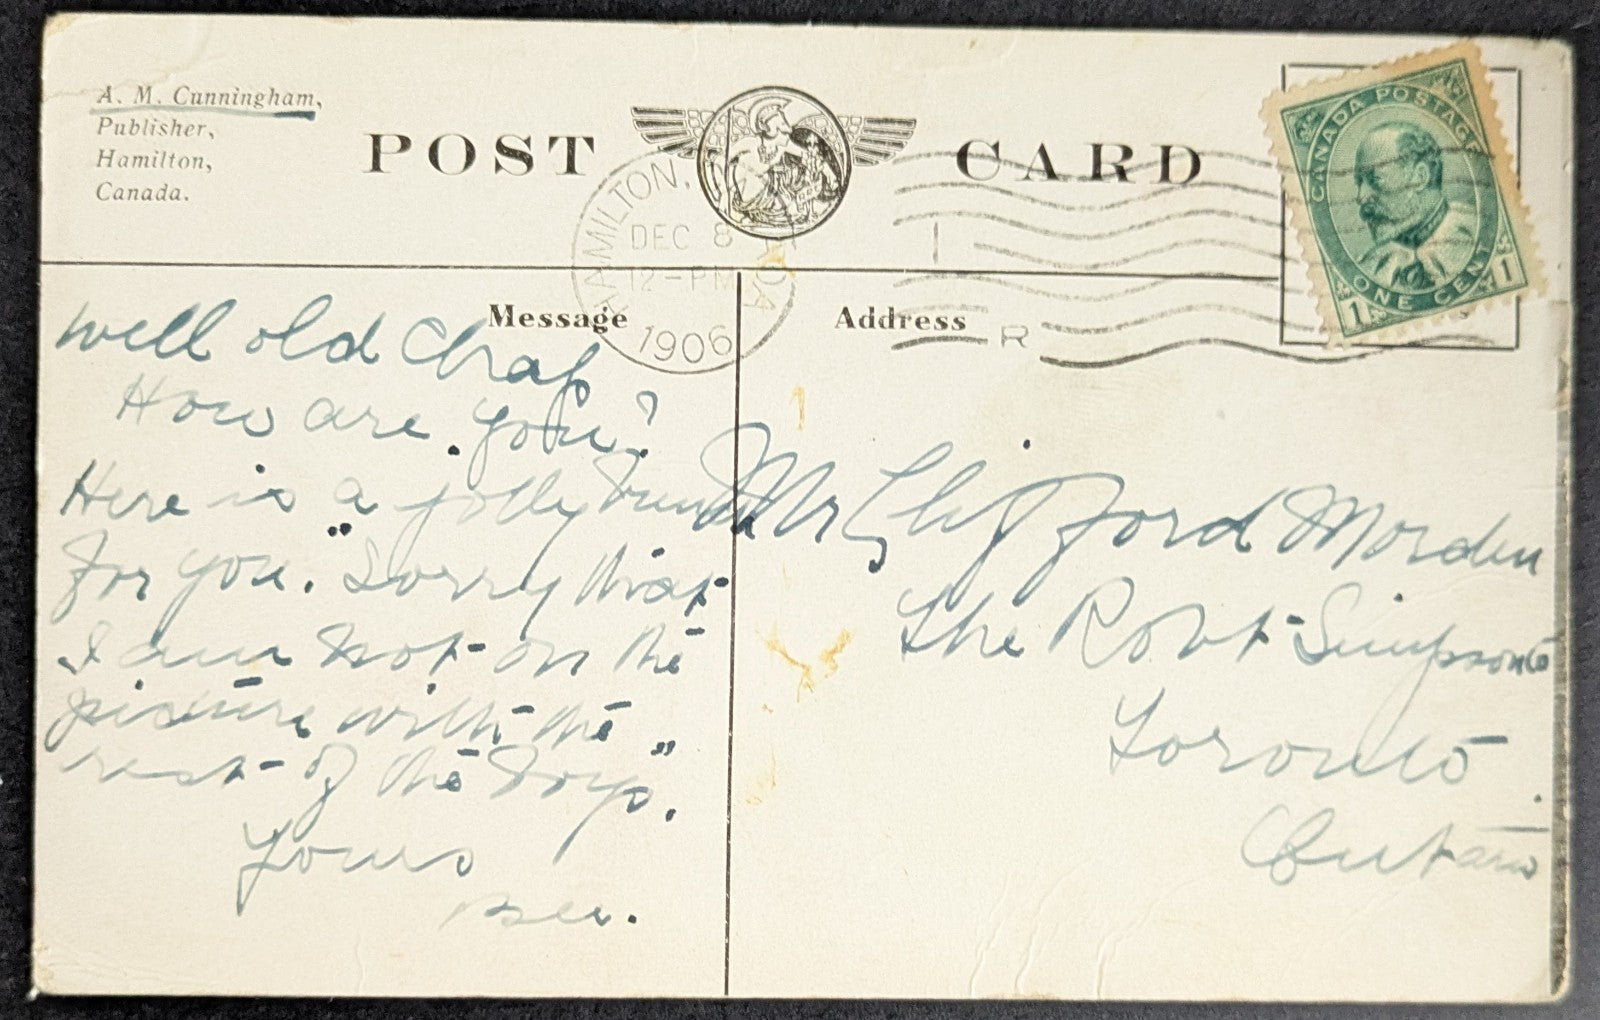 A. M. Cunningham,
Publisher,
Hamilton,
Canada.
POST CARD
HAMILTON,
DEC 8
12-PM
1906
R
CANADA POSTAGE
ONE CENT
1 1
Message
Well old Chap
How are you?
Here is a jolly
for you. "Sorry that
I am not on the
picture with the
rest of the boys".
Yours
Address
Mr Clifford Morden
The Robt Simpson Co
Toronto
Ontario